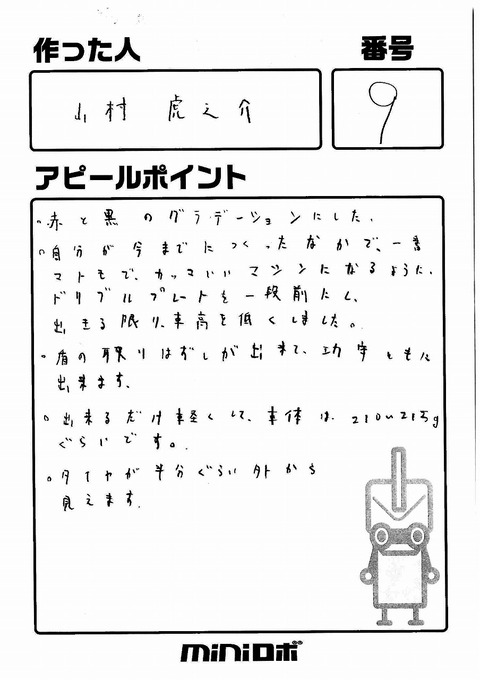 作った人
番号
山村 虎之介
9
アピールポイント
・赤と黒のグラデーションにした。
・自分が今までにつくったなかで、一番
マトモで、カッコいいマシンになるように、
ドリブルプレートを一段前にし、
出きる限り、車高を低くしました。
・盾の取りはずしが出来て、攻守ともに
出来ます。
・出来るだけ軽くして、車体は、210~215g
ぐらいです。
・タイヤが半分ぐらい外から
見えます。
miniロボ